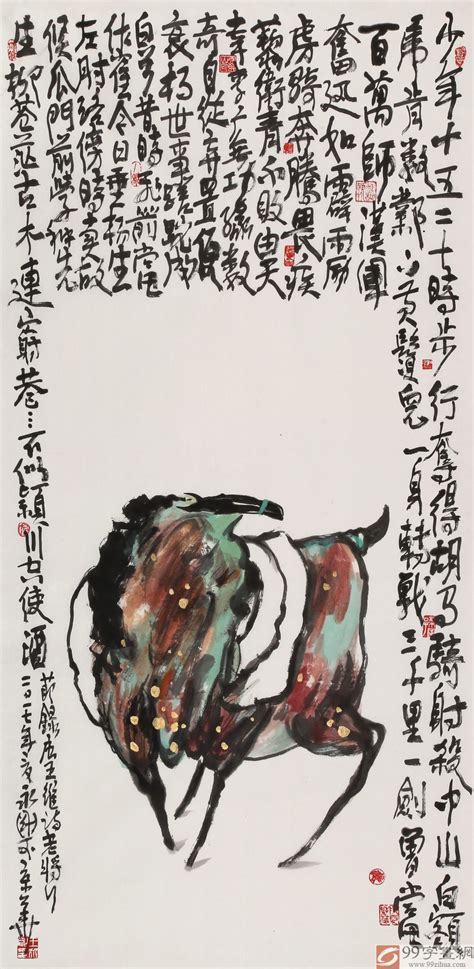 少年十五二十時步行奪得胡馬騎射殺中山白額
虎肯數鄴下黃鬚兒一身轉戰三千里一劍曾當
百萬師漢軍
奮迅如霹靂
虜騎奔騰畏蒺
藜衛青不敗由天
幸李广無功緣數
奇自從弃置便
衰朽世事蹉跎成
白首昔時飛箭
雀今日垂楊生
左肘路傍時賣故
侯瓜門前學種先
生柳蒼茫古木連窮巷…不似潁川空使酒
節錄唐王維詩老將行
二〇一七年
99字畫網
www.99zihua.com